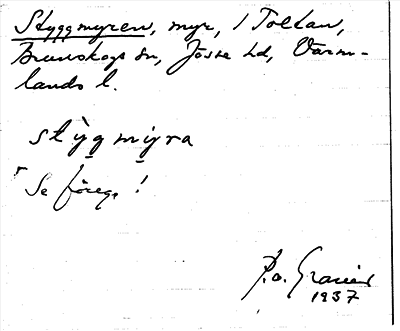 Styggmyren, myr, 1 Toltan,
Brunskogs sn, Jösse hd, Värm-
lands l.
stỳg mỳra
Se föreg. !
P.o. Granér
1937